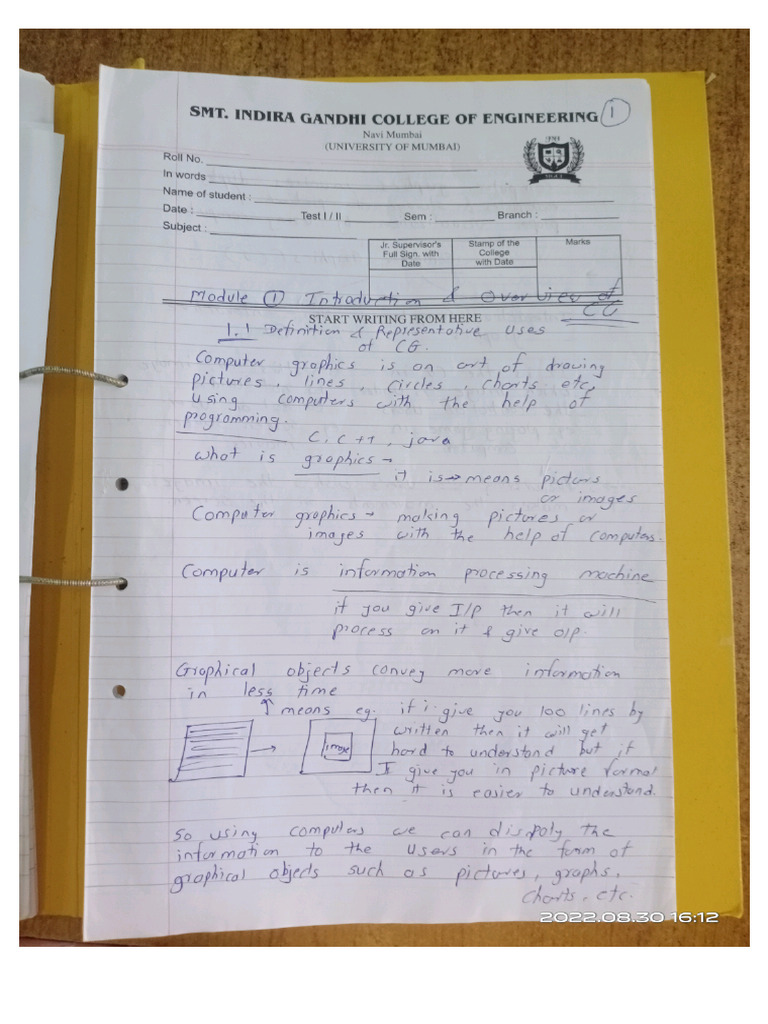 SMT. INDIRA GANDHI COLLEGE OF ENGINEERING 1
Navi Mumbai
(UNIVERSITY OF MUMBAI)
Roll No.
In words
Name of student :
Date : Test I / II Sem : Branch :
Subject :
Jr. Supervisor's Full Sign. with Date
Stamp of the College with Date
Marks
Module 1 Introduction & Overview of CG
START WRITING FROM HERE
1.1 Definition & Representative uses
of CG.
Computer graphics is an art of drawing
pictures, lines, circles, charts etc,
using computers with the help of
programming.
C, C++, java
what is graphics →
it is → means picturs
or images
Computer graphics → making pictures or
images with the help of computers.
Computer is information processing machine
if you give I/p then it will
process on it & give o/p.
Graphical objects convey more information
in less time
means eg. if i give you 100 lines by
written then it will get
hard to understand but if
I give you in picture format
then it is easier to understand.
image
So using computers we can disploly the
information to the users in the form of
graphical objects such as pictures, graphs,
charts, etc.
2022.08.30 16:12